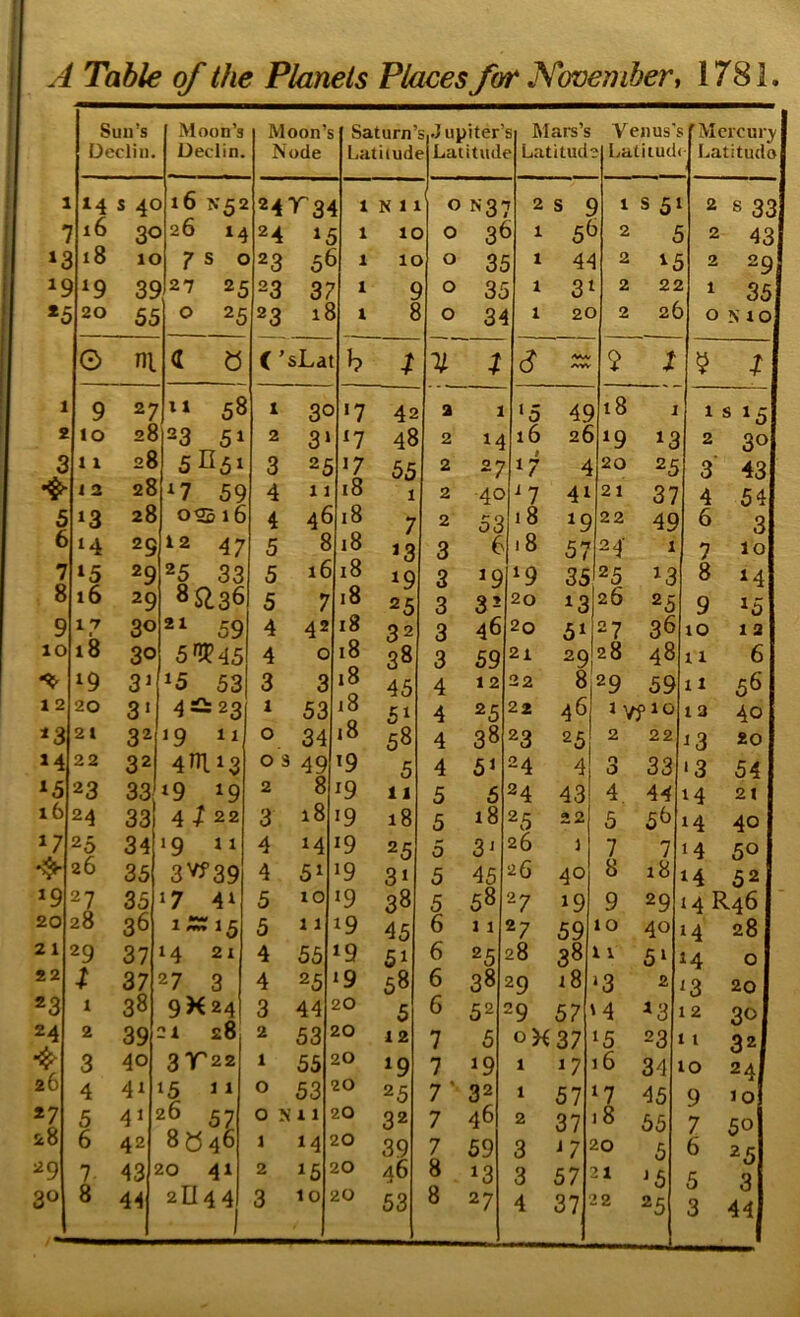 A Table of the Planets Places for November, 1781.
Sun's Declin. | Moon's Declin. | Moon's Node | Saturn's Latitude | Jupiter's Latitude | Mars's Latitude | Venus's Latitude | Mercury Latitude
1 | 14 S 40 | 16 N52 | 24♈34 | 1 N 11 | 0 N37 | 2 S 9 | 1 S 51 | 2 S 33
7 | 16 30 | 26 14 | 24 15 | 1 10 | 0 36 | 1 56 | 2 5 | 2 43
13 | 18 10 | 7 S 0 | 23 56 | 1 10 | 0 35 | 1 44 | 2 15 | 2 29
19 | 19 39 | 27 25 | 23 37 | 1 9 | 0 35 | 1 31 | 2 22 | 1 35
25 | 20 55 | 0 25 | 23 18 | 1 8 | 0 34 | 1 20 | 2 26 | 0 N 10
☉ ♏ | ☾ ♉ | ☾'sLat | ♄ ♐ | ♃ ♐ | ♂ ♒ | ♀ ♐ | ☿ ♐
1 | 9 27 | 11 58 | 1 30 | 17 42 | 2 1 | 15 49 | 18 1 | 1 S 15
2 | 10 28 | 23 51 | 2 31 | 17 48 | 2 14 | 16 26 | 19 13 | 2 30
3 | 11 28 | 5♊51 | 3 25 | 17 55 | 2 27 | 17 4 | 20 25 | 3 43
✤ | 12 28 | 17 59 | 4 11 | 18 1 | 2 40 | 17 41 | 21 37 | 4 54
5 | 13 28 | 0♋16 | 4 46 | 18 7 | 2 53 | 18 19 | 22 49 | 6 3
6 | 14 29 | 12 47 | 5 8 | 18 13 | 3 6 | 18 57 | 24 1 | 7 10
7 | 15 29 | 25 33 | 5 16 | 18 19 | 3 19 | 19 35 | 25 13 | 8 14
8 | 16 29 | 8♌36 | 5 7 | 18 25 | 3 32 | 20 13 | 26 25 | 9 15
9 | 17 30 | 21 59 | 4 42 | 18 32 | 3 46 | 20 51 | 27 36 | 10 12
10 | 18 30 | 5♍45 | 4 0 | 18 38 | 3 59 | 21 29 | 28 48 | 11 6
✤ | 19 31 | 15 53 | 3 3 | 18 45 | 4 12 | 22 8 | 29 59 | 11 56
12 | 20 31 | 4♎23 | 1 53 | 18 51 | 4 25 | 22 46 | 1♑10 | 12 40
13 | 21 32 | 19 11 | 0 34 | 18 58 | 4 38 | 23 25 | 2 22 | 13 20
14 | 22 32 | 4♏13 | 0 S 49 | 19 5 | 4 51 | 24 4 | 3 33 | 13 54
15 | 23 33 | 19 19 | 2 8 | 19 11 | 5 5 | 24 43 | 4 44 | 14 21
16 | 24 33 | 4♐22 | 3 18 | 19 18 | 5 18 | 25 22 | 5 56 | 14 40
17 | 25 34 | 19 11 | 4 14 | 19 25 | 5 31 | 26 1 | 7 7 | 14 50
✤ | 26 35 | 3♑39 | 4 51 | 19 31 | 5 45 | 26 40 | 8 18 | 14 52
19 | 27 35 | 17 41 | 5 10 | 19 38 | 5 58 | 27 19 | 9 29 | 14 R46
20 | 28 36 | 1♒15 | 5 11 | 19 45 | 6 11 | 27 59 | 10 40 | 14 28
21 | 29 37 | 14 21 | 4 55 | 19 51 | 6 25 | 28 38 | 11 51 | 14 0
22 | ♐ 37 | 27 3 | 4 25 | 19 58 | 6 38 | 29 18 | 13 2 | 13 20
23 | 1 38 | 9♓24 | 3 44 | 20 5 | 6 52 | 29 57 | 14 13 | 12 30
24 | 2 39 | 21 28 | 2 53 | 20 12 | 7 5 | 0♓37 | 15 23 | 11 32
✤ | 3 40 | 3♈22 | 1 55 | 20 19 | 7 19 | 1 17 | 16 34 | 10 24
26 | 4 41 | 15 11 | 0 53 | 20 25 | 7 32 | 1 57 | 17 45 | 9 10
27 | 5 41 | 26 57 | 0 N 11 | 20 32 | 7 46 | 2 37 | 18 55 | 7 50
28 | 6 42 | 8♉46 | 1 14 | 20 39 | 7 59 | 3 17 | 20 5 | 6 25
29 | 7 43 | 20 41 | 2 15 | 20 46 | 8 13 | 3 57 | 21 15 | 5 3
30 | 8 44 | 2♊44 | 3 10 | 20 53 | 8 27 | 4 37 | 22 25 | 3 44